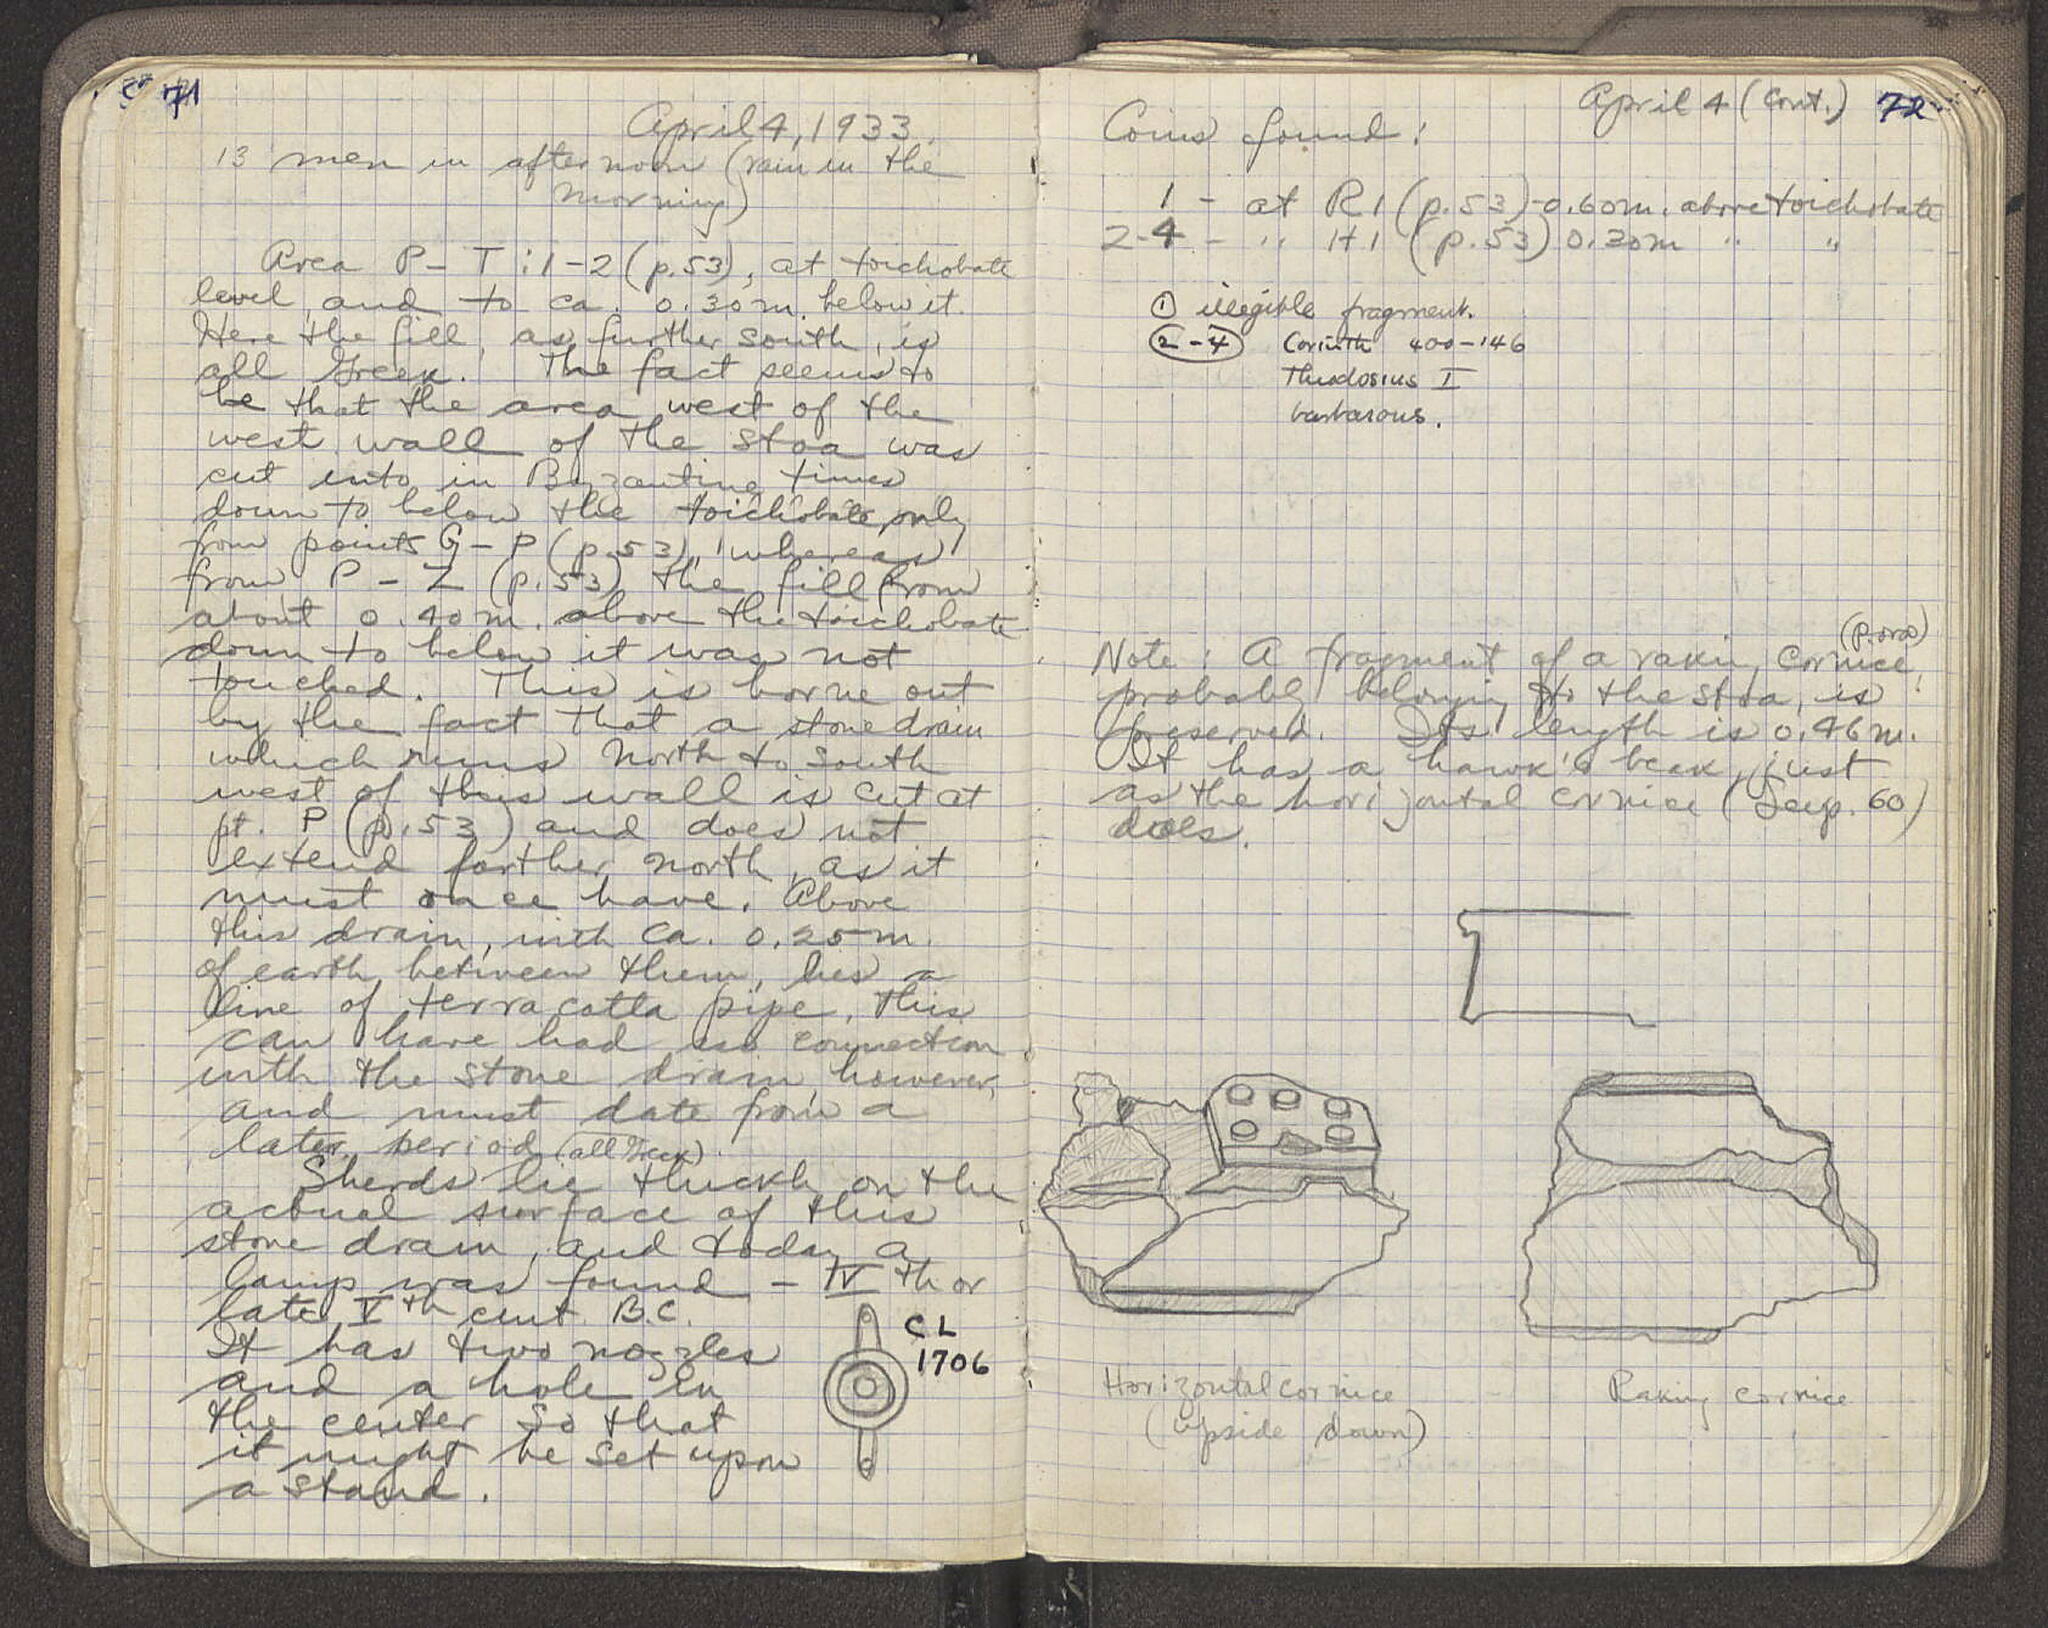 71
April 4, 1933.
13 men in afternoon (rain in the
morning)
Area P-T:1-2 (p.53), at toichobate
level and to ca. 0.30 m. below it.
Here the fill, as further south, is
all Greek. The fact seems to
be that the area west of the
west wall of the stoa was
cut into in Byzantine times
down to below the toichobate only
from points G-P (p.53), whereas
from P-Z (p.53) the fill from
about 0.40 m. above the toichobate
down to below it was not
touched. This is borne out
by the fact that a stone drain
which runs North to South
west of this wall is cut at
pt. P (p.53) and does not
extend farther north, as it
must once have. Above
this drain, with ca. 0.25 m.
of earth between them, lies a
line of terra cotta pipe. This
can have had no connection
with the stone drain, however,
and must date from a
later period.
Sherds (all Greek) lie thickly on the
actual surface of this
stone drain, and today a
lamp was found - IV th or
late V th cent. B.C.
It has two nozzles
and a hole in
the center so that
it might be set upon
a stand.
CL
1706
April 4 (cont.) 72
Coins found:
1 - at R1 (p.53) - 0.60 m. above toichobate
2-4 - " H1 (p.53) 0.30 m " "
① illegible fragment.
2-4 Corinth 400-146
Theodosius I
barbarous.
Note: A fragment of a rakin cornice (poros),
probably belonging to the stoa, is
preserved. Its length is 0.46 m.
It has a hawk's beak, just
as the horizontal cornice (See p. 60)
does.
Horizontal cornice
(upside down)
Raking cornice